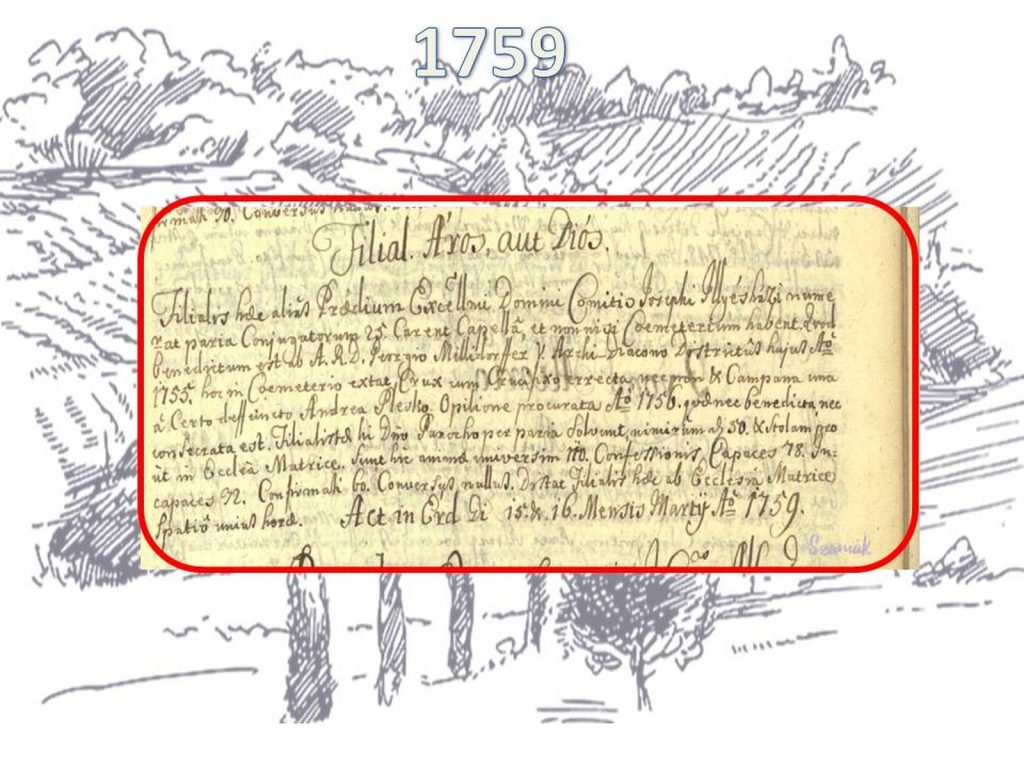 1759
90. Conversus
Filial. Áros. aut Diós.
Filialis hæc aliàs Prædium Excellmi Domini Comitis Josephi Illyésházi nume
rat paria Conjugatorum 25. Carent Capellâ, et non nisi Coemeterium habent. Quod
benedictum est ab A. R. D. Georgio Millidorffer V. Archi-Diacono Districtûs hujus Aô
1755. hoc in Coemeterio extat Crux cum Crucifixo errecta, nec non & Campana una
à Certo deffuncto Andrea Plesko Opilione procurata Aô 1756. quæ nec benedicta nec
consecrata est. Filialistæ hi Dño Parocho per paria Solvunt, nimirum 50. & Stolam pro
ùt in Ecclesia Matrice. Sunt hic animæ universim 110. Confessionis Capaces 78. In-
capaces 32. Confirmati 60. Conversus nullus. Distat Filialis hæc ab Ecclesia Matrice
Spatiô unius horæ. Act in Erd Di 15. & 16. Mensis Martij Aô 1759.
Szamák